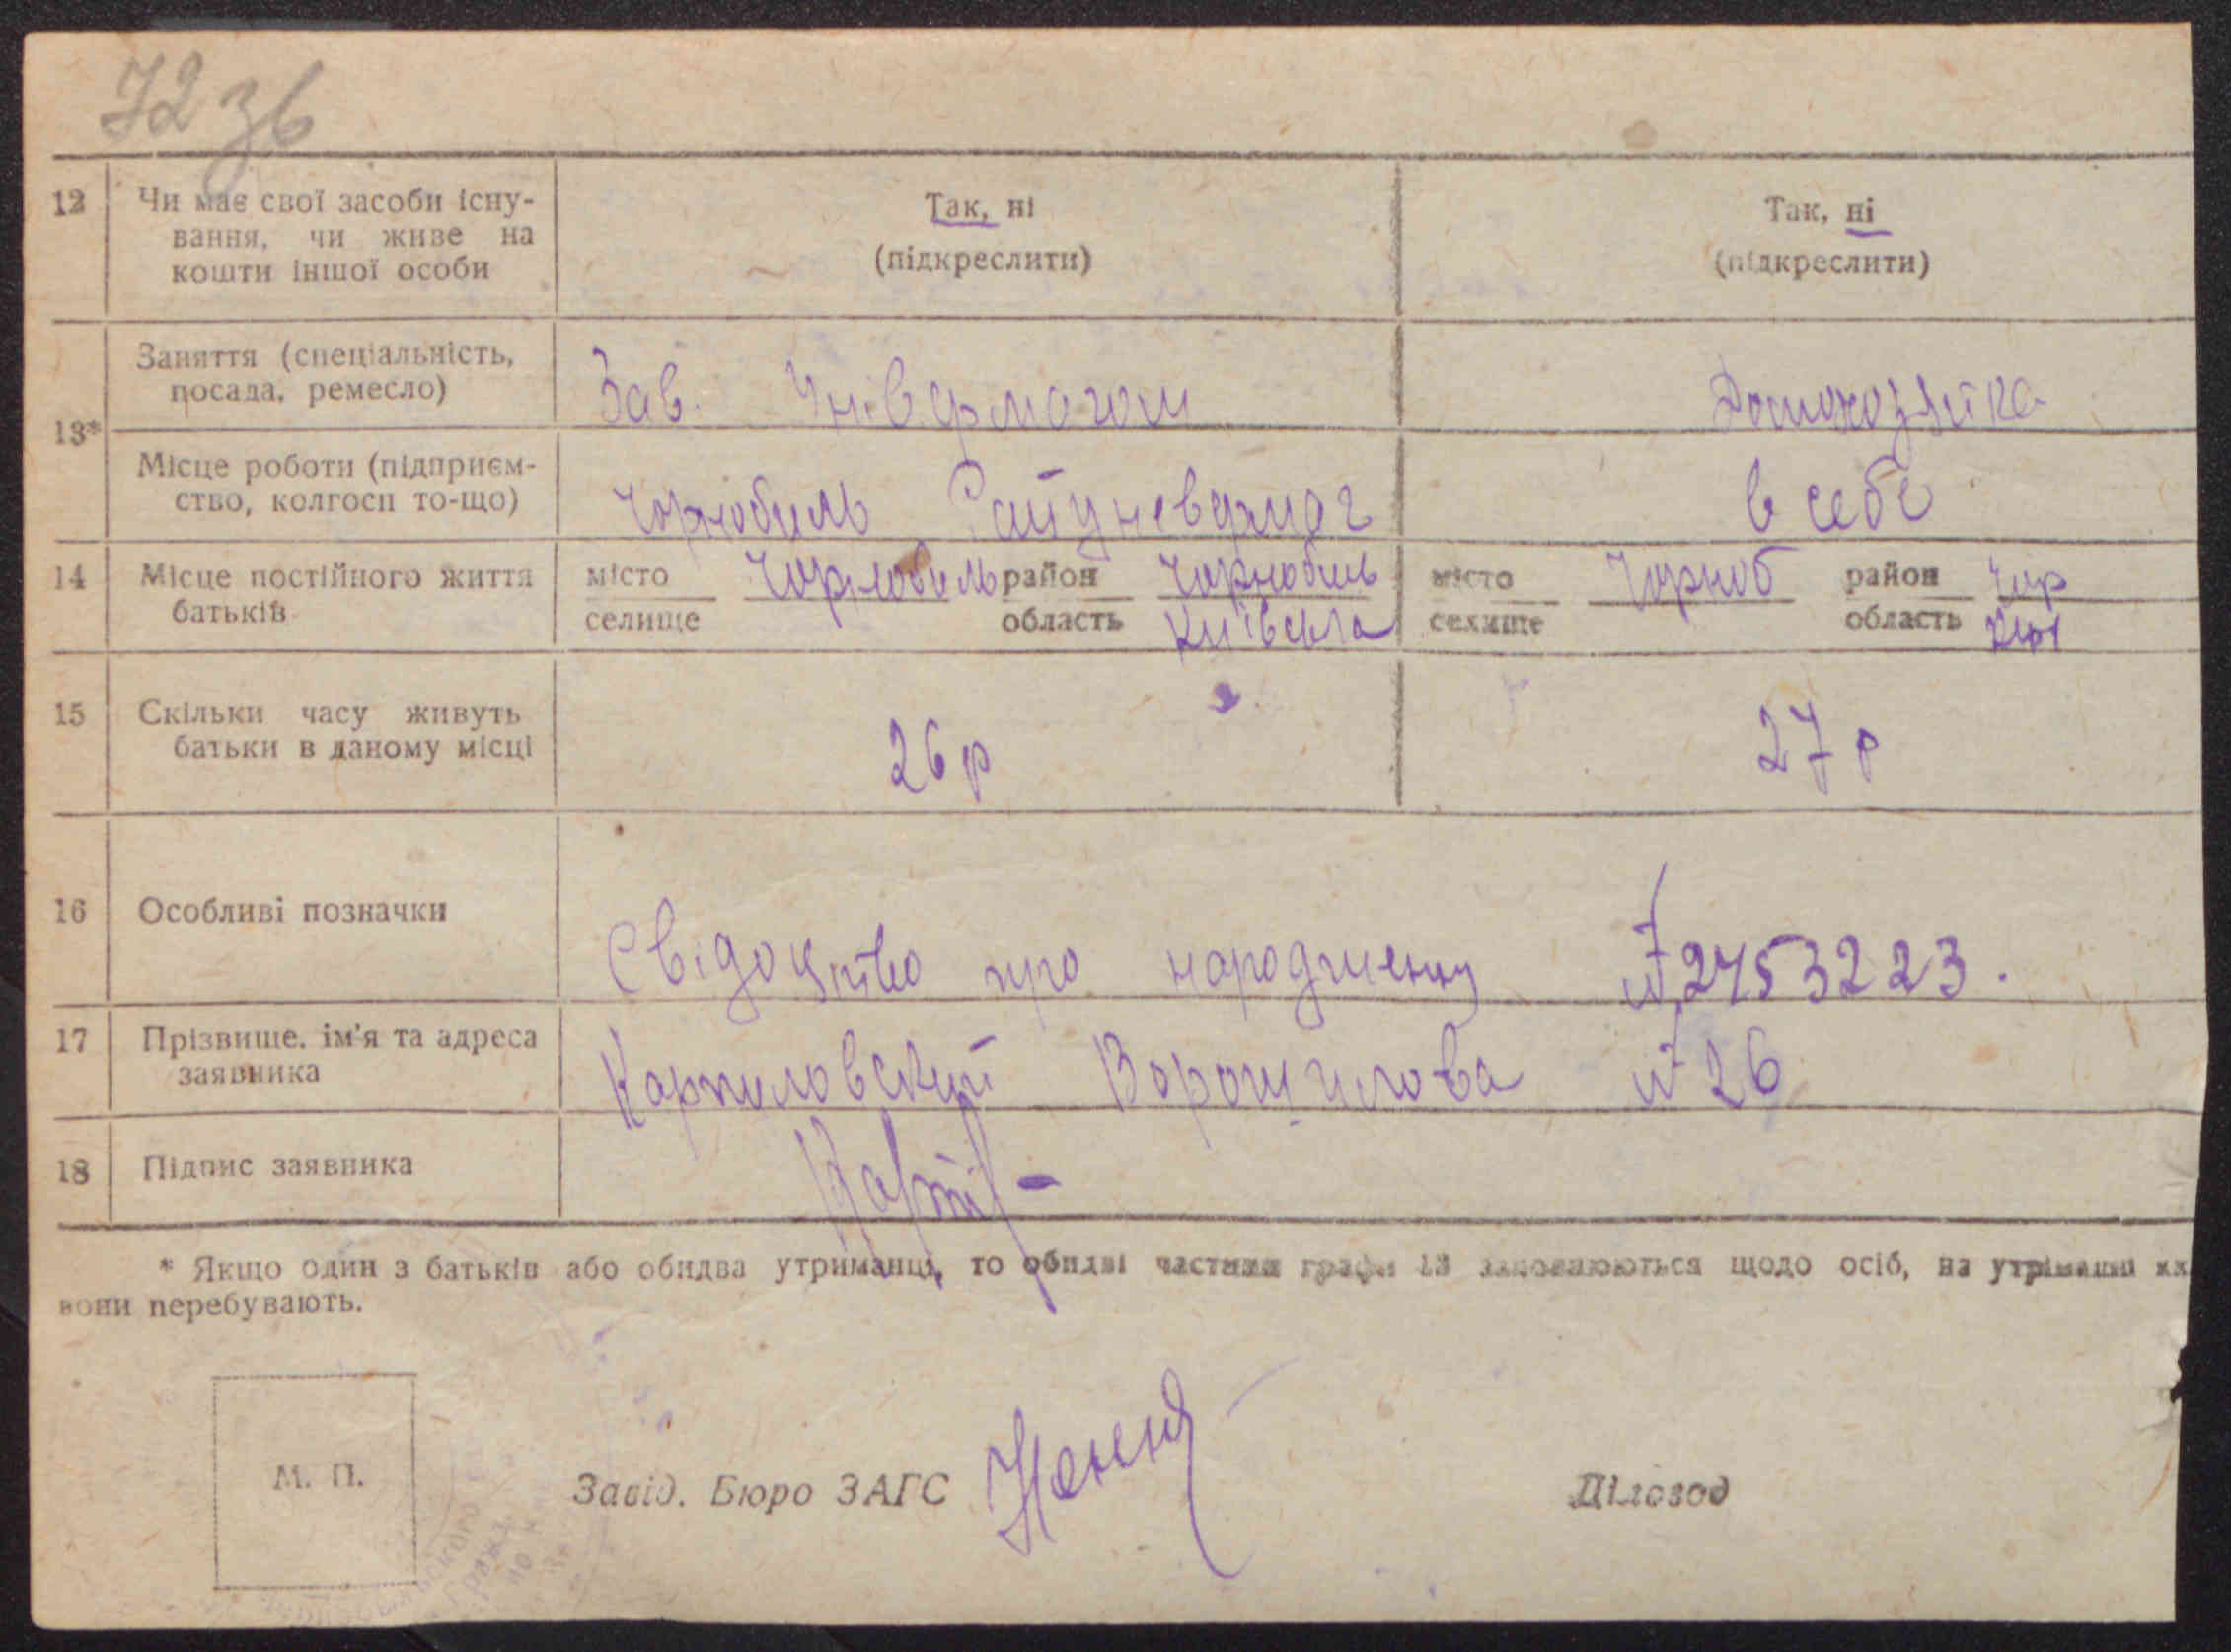 72 зв
12 Чи має свої засоби існу-
вання, чи живе на
кошти іншої особи
Так, ні
(підкреслити)
Так, ні
(підкреслити)
13*
Заняття (спеціальність,
посада, ремесло)
Зав. Універмагом
Домохозяйка
Місце роботи (підприєм-
ство, колгосп то-що)
Чорнобиль Райуневермаг
в себе
14 Місце постійного життя
батьків
місто Чорнобиль район Чорнобиль
селище область Київська
місто Чорноб район Чор
селище область
15 Скільки часу живуть
батьки в даному місці
26 р
27 р
16 Особливі позначки
Свідоцтво про народження № 2453223.
17 Прізвище, ім'я та адреса
заявника
Карпиловский Ворошилова № 26
18 Підпис заявника
* Якщо один з батьків або обидва утриманці, то обидві частини графи 13 заповнюються щодо осіб, на утриманні як
вони перебувають.
М. П.
Завід. Бюро ЗАГС
Діловод